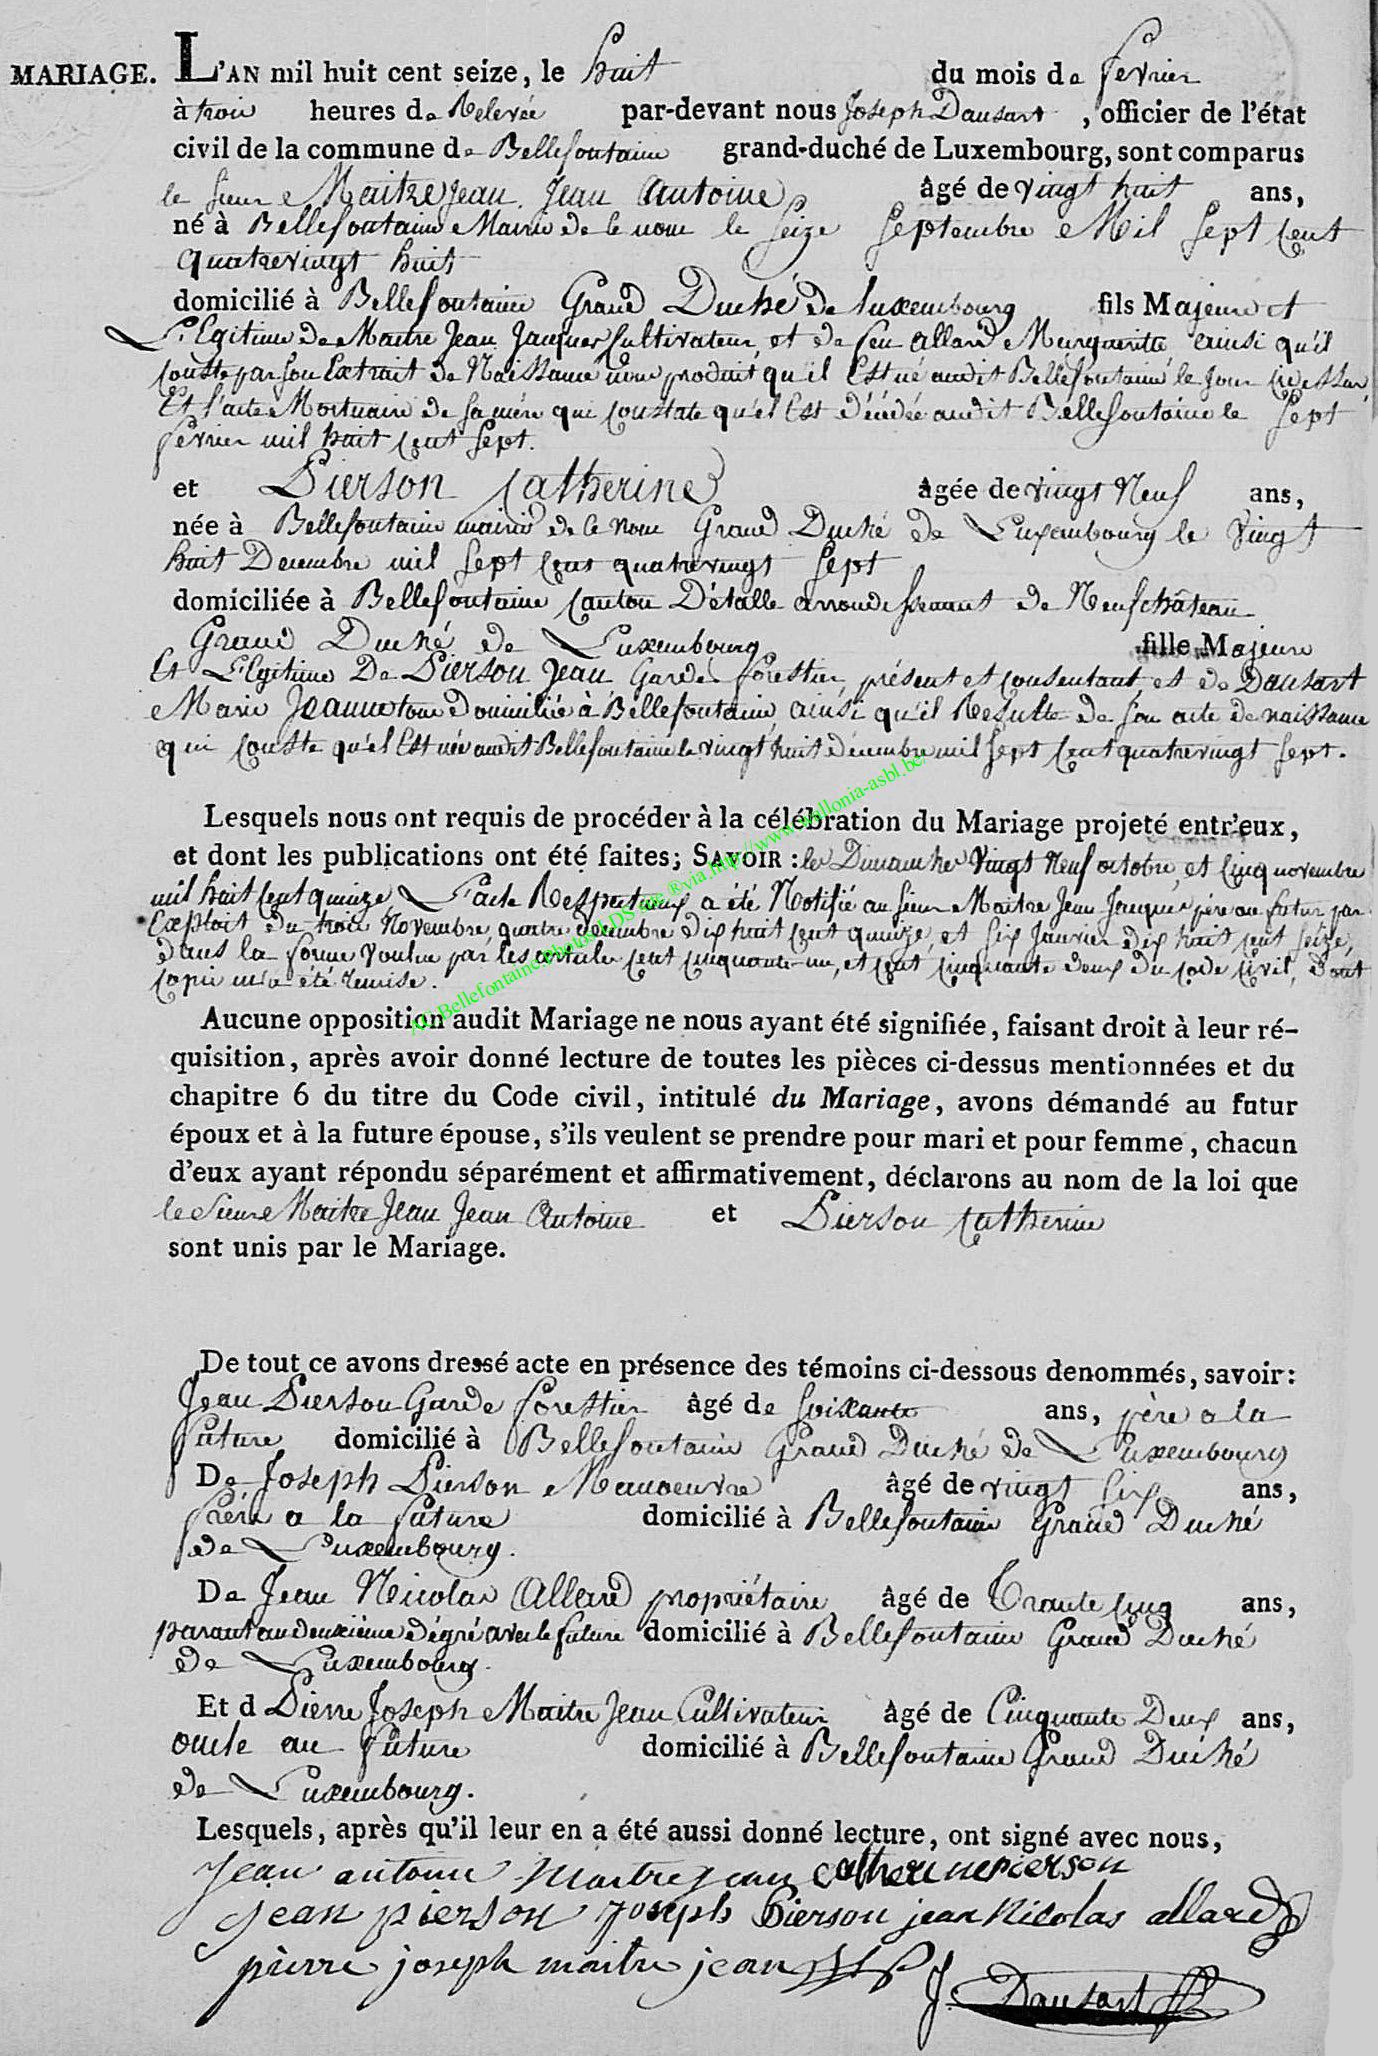 MARIAGE. L'AN mil huit cent seize, le huit du mois de fevrier
à trois heures de Relevée par-devant nous Joseph Dausart, officier de l'état
civil de la commune de Bellefontaine grand-duché de Luxembourg, sont comparus
le sieur Maitrejean Jean Antoine âgé de vingt huit ans,
né à Bellefontaine Mairie de ce nom le seize septembre Mil sept cent
quatrevingt huit
domicilié à Bellefontaine Grand Duché de luxembourg fils Majeur et
LEgitime de Maitre Jean Jacques Cultivateur, et de feu allard Marguerite ainsi qu'il
conste par son Extrait de Naissance nous produit qu'il Est né audit Bellefontaine le jour cidessus,
Et l'acte Mortuaire de sa mére qui constate qu'el Est décédée audit Bellefontaine le sept
fevrier mil huit cent sept.
et Pierson Catherine âgée de vingt Neuf ans,
née à Bellefontaine mairie de ce nom Grand Duché de Luxembourg le vingt
huit Decembre mil sept cent quatrevingt sept
domiciliée à Bellefontaine canton D'étalle arrondissement de Neufchâteau
Grand Duché de Luxembourg fille Majeure
Et LEgitime De Pierson Jean Garde forestier présent et consentant, et de Dausart
Marie Jeanne tous domicilié à Bellefontaine, ainsi qu'il Resulte de son acte de naissance
qui conste qu'el Est née audit Bellefontaine le vingt huit décembre mil sept cent quatrevingt sept.
Lesquels nous ont requis de procéder à la célébration du Mariage projeté entr'eux,
et dont les publications ont été faites; SAVOIR : les Dimanches vingt Neuf octobre, et cinq novembre
mil huit cent quinze, L'acte Respectueux a été Notifié au sieur Maitre Jean Jacques père au futur par
Exploit du trois Novembre, quatre décembre dix huit cent quinze, et six Janvier dix huit cent seize,
dans la forme voulue par les articles cent cinquante-un, et cent cinquante deux du code Civil, dont
copie m'a été remise.
AC Bellefontaine, Photos LDS inc.®via http://www.wallonia-asbl.be/
Aucune opposition audit Mariage ne nous ayant été signifiée, faisant droit à leur ré-
quisition, après avoir donné lecture de toutes les pièces ci-dessus mentionnées et du
chapitre 6 du titre du Code civil, intitulé du Mariage, avons démandé au futur
époux et à la future épouse, s'ils veulent se prendre pour mari et pour femme, chacun
d'eux ayant répondu séparément et affirmativement, déclarons au nom de la loi que
le Sieur Maitre Jean Jean Antoine et Pierson Catherine
sont unis par le Mariage.
De tout ce avons dressé acte en présence des témoins ci-dessous denommés, savoir:
Jean Pierson Garde forestier âgé de soixante ans, père a la
future domicilié à Bellefontaine Grand Duché de Luxembourg
De Joseph Pierson Manoeuvre âgé de vingt six ans,
frére a la future domicilié à Bellefontaine Grand Duché
de Luxembourg.
De Jean Nicolas Allard propriétaire âgé de Trante cinq ans,
parant au deuxiéme dégré avec le future domicilié à Bellefontaine Grand Duché
de Luxembourg.
Et d Pierre Joseph Maitre Jean Cultivateur âgé de Cinquante Deux ans,
oncle au future domicilié à Bellefontaine Grand Duché
de Luxembourg.
Lesquels, après qu'il leur en a été aussi donné lecture, ont signé avec nous,
Jean antoine Maitrejean catherine pierson
jean pierson joseph Pierson jean Nicolas allard
pierre joseph maitre jean
J. Dausart